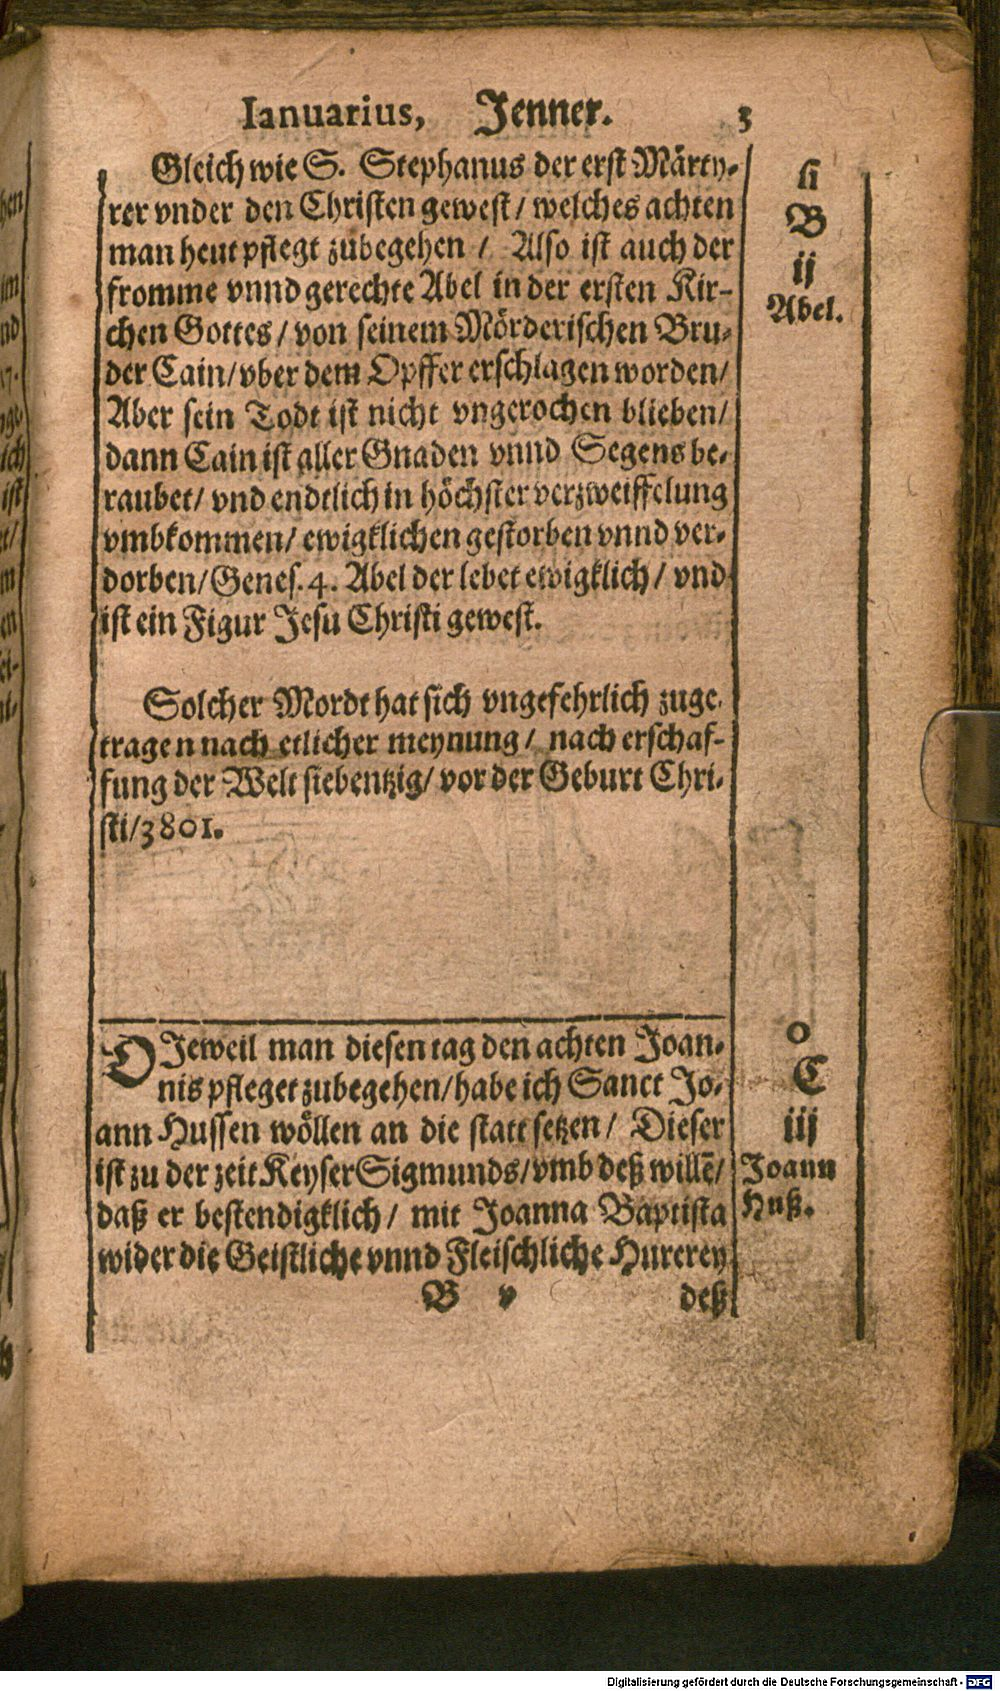 Ianuarius, Jenner. 3
Gleich wie S. Stephanus der erst Märty-
rer vnder den Christen gewest / welches achten
man heut pflegt zubegehen / Also ist auch der
fromme vnnd gerechte Abel in der ersten Kir-
chen Gottes / von seinem Mörderischen Bru-
der Cain / vber dem Opffer erschlagen worden /
Aber sein Todt ist nicht vngerochen blieben /
dann Cain ist aller Gnaden vnnd Segens be-
raubet / vnd endtlich in höchster verzweiffelung
vmbkommen / ewigklichen gestorben vnnd ver-
dorben / Genes. 4. Abel der lebet ewigklich / vnd
ist ein Figur Jesu Christi gewest.
si
B
ij
Abel.
Solcher Mordt hat sich vngefehrlich zuge-
tragen nach etlicher meynung / nach erschaf-
fung der Welt siebentzig / vor der Geburt Chri-
sti / 3801.
DJeweil man diesen tag den achten Joan-
nis pfleget zubegehen / habe ich Sanct Jo-
ann Hussen wöllen an die statt setzen / Dieser
ist zu der zeit Keyser Sigmunds / vmb deß willē /
daß er bestendigklich / mit Joanna Baptista
wider die Geistliche vnnd Fleischliche Hurerey
B v deß
o
C
iij
Joann
Huß.
Digitalisierung gefördert durch die Deutsche Forschungsgemeinschaft - DFG